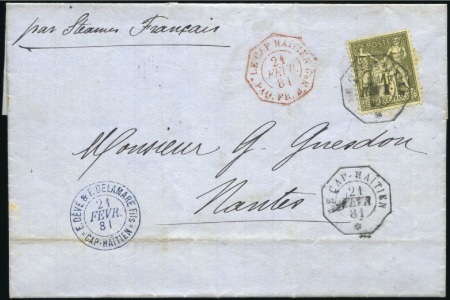 par Steamer Français
LE CAP HAITIEN
21
FEVR
81
PAQ. FR.
POSTES
1
Monsieur G. Guesdon
Nantes
F. DEVÉ & F. DELAMARE FILS
21
FÉVR.
81
CAP-HAÏTIEN
CAP-HAITIEN
21
FEVR
81